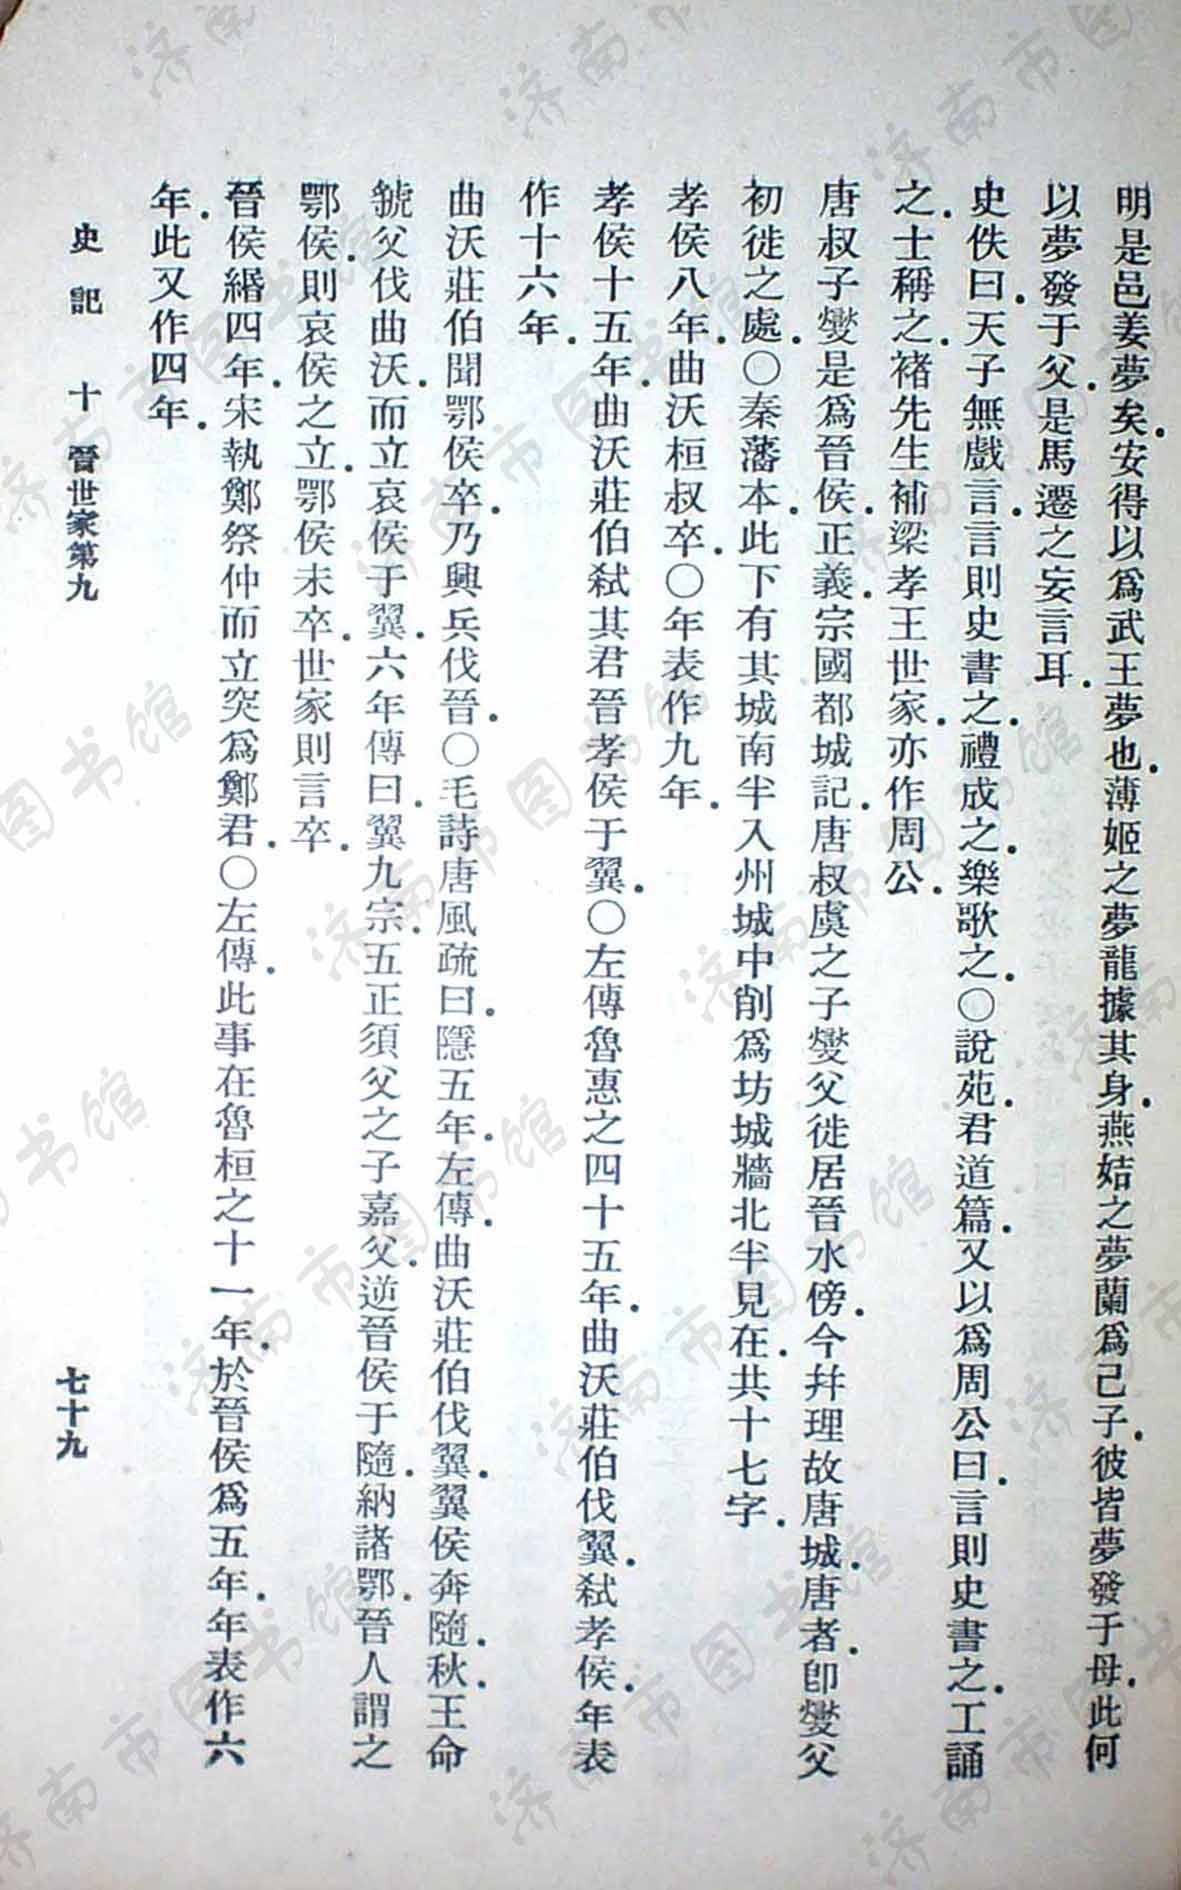 明是邑姜夢矣.安得以爲武王夢也.薄姬之夢龍據其身.燕姞之夢蘭爲己子.彼皆夢發于母.此何
以夢發于父.是馬遷之妄言耳.
史佚曰.天子無戲言.言則史書之.禮成之.樂歌之.〇說苑.君道篇.又以爲周公曰.言則史書之.工誦
之.士稱之.褚先生補梁孝王世家.亦作周公.
唐叔子燮是爲晉侯.正義.宗國都城記.唐叔虞之子燮父徙居晉水傍.今幷理故唐城.唐者.卽燮父
初徙之處.〇秦藩本.此下有其城南半入州城中削爲坊城牆北半見在.共十七字.
孝侯八年.曲沃桓叔卒.〇年表作九年.
孝侯十五年.曲沃莊伯弑其君晉孝侯于翼.〇左傳魯惠之四十五年.曲沃莊伯伐翼.弑孝侯.年表
作十六年.
曲沃莊伯聞鄂侯卒.乃興兵伐晉.〇毛詩唐風疏曰.隱五年.左傳.曲沃莊伯伐翼.翼侯奔隨.秋.王命
虢父伐曲沃.而立哀侯于翼.六年傳曰.翼九宗.五正須父之子嘉父.逆晉侯于隨.納諸鄂.晉人謂之
鄂侯.則哀侯之立.鄂侯未卒.世家則言卒.
晉侯緡四年.宋執鄭祭仲而立突爲鄭君.〇左傳.此事在魯桓之十一年.於晉侯爲五年.年表作六
年.此又作四年.
史記 十 晉世家第九 七十九
济南市图书馆